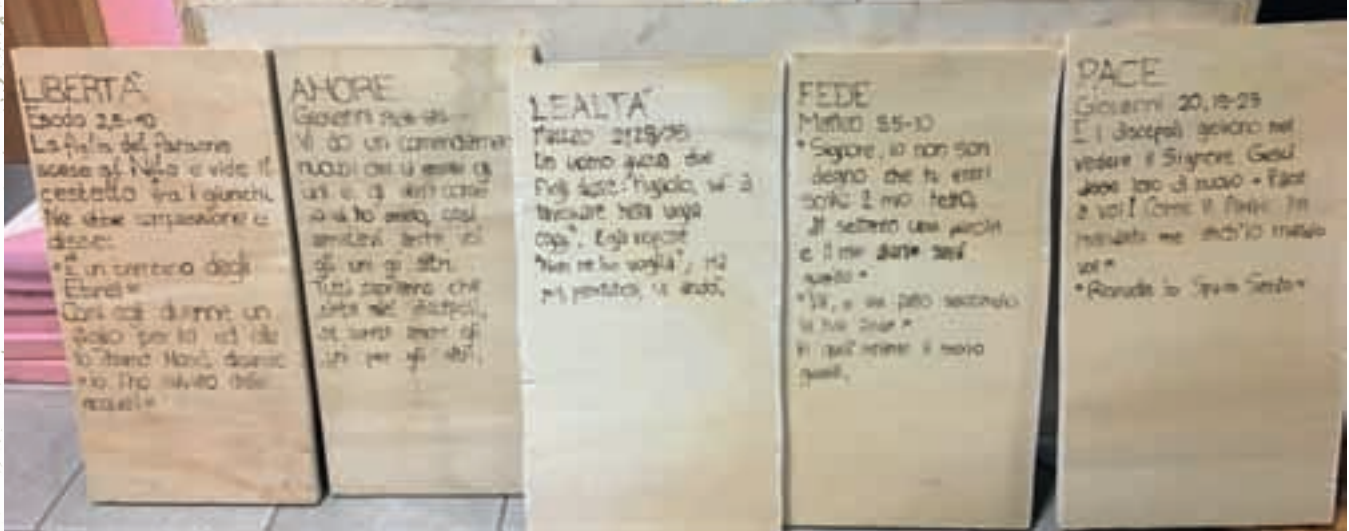 LIBERTÀ
Esodo 2,5-10
La figlia del faraone
scese al Nilo e vide il
cestello fra i giunchi.
Ne ebbe compassione e
disse:
"È un bambino degli
Ebrei"
Così egli divenne un
figlio per lei ed ella
lo chiamò Mosè, dicendo:
"Io l'ho salvato dalle
acque!"
AMORE
Giovanni
Vi do un comandamento
nuovo: che vi amiate gli
uni e gli altri come
io vi ho amato, così
amatevi anche voi
gli uni gli altri.
Tutti sapranno che
siete miei discepoli,
se avrete amore gli
uni per gli altri.
LEALTÀ
Un uomo aveva due
figli disse: "Figliolo, va' a
lavorare nella vigna
oggi". Egli rispose
"Non ne ho voglia", ma
poi, pentitosi, ci andò.
FEDE
Matteo 8 5-10
"Signore, io non son
degno che tu entri
sotto il mio tetto,
dì soltanto una parola
e il mio servo sarà
guarito"
"Va', e sia fatto secondo
la tua fede"
In quell'istante il servo
guarì.
PACE
Giovanni 20,19-23
E i discepoli gioirono nel
vedere il Signore. Gesù
disse loro di nuovo "Pace
a voi! Come il Padre ha
mandato me anch'io mando
voi"
"Ricevete lo Spirito Santo"